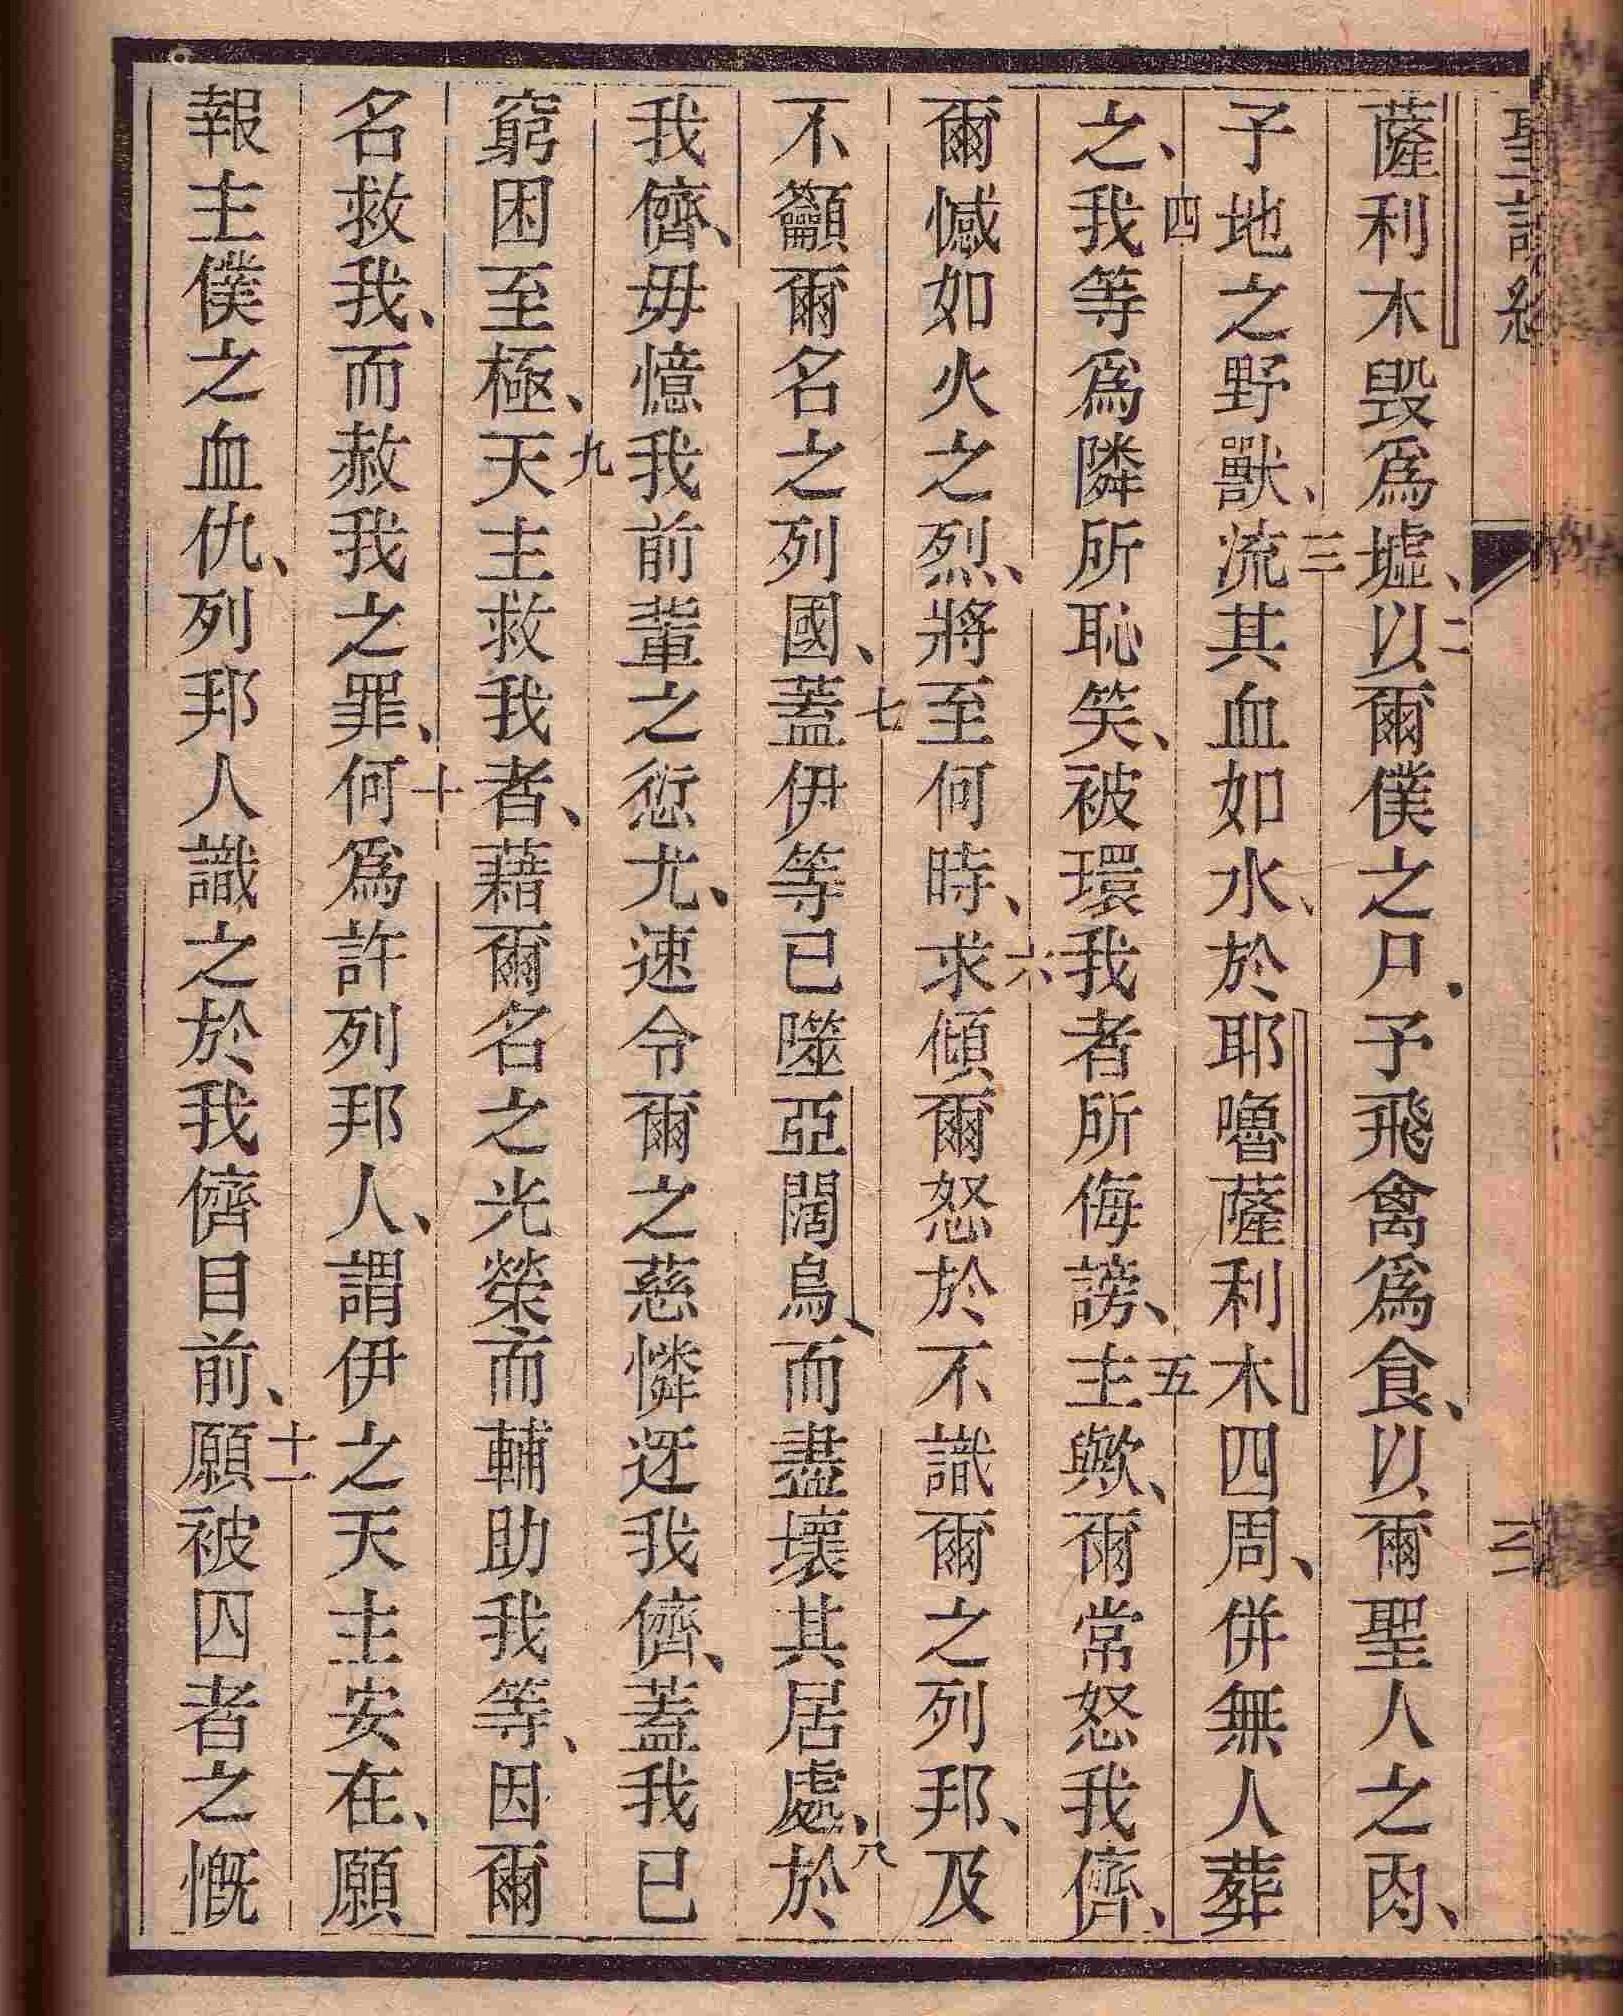 聖詠
薩利木毁爲墟、二以爾僕之尸.予飛禽爲食、以爾聖人之肉、
予地之野獸、三流其血如水、於耶嚕薩利木四周、併無人葬
之、四我等爲隣所恥笑、被環我者所侮謗、五主歟、爾常怒我儕、
爾憾如火之烈、將至何時、六求傾爾怒於不識爾之列邦、及
不籲爾名之列國、七蓋伊等已噬亞闊烏、而盡壞其居處、八於
我儕、毋憶我前輩之愆尤、速令爾之慈憐迓我儕、蓋我已
窮困至極、九天主救我者、藉爾名之光榮而輔助我等、因爾
名救我、而赦我之罪、十何爲許列邦人、謂伊之天主安在、願
報主僕之血仇、列邦人識之於我儕目前、十一願被囚者之慨